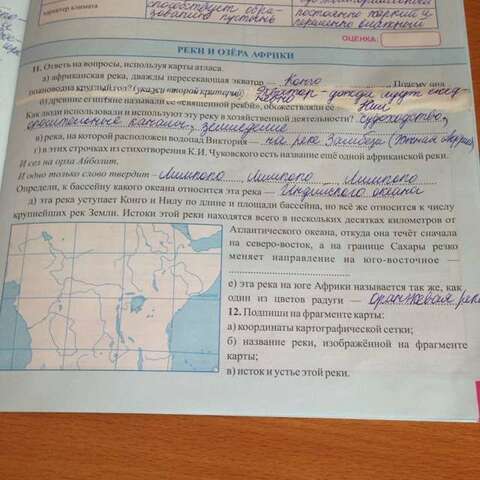 характер климата
способствует обра-
зованию пустынь
постоянно жаркий и
переменно влажный
ОЦЕНКА:
РЕКИ И ОЗЁРА АФРИКИ
11. Ответь на вопросы, используя карты атласа.
а) африканская река, дважды пересекающая экватор — Конго. Почему она
полноводна круглый год? (укажи второй критерий) Экватор - дожди идут ежед-
невно
б) древние египтяне называли её «священной рекой», обожествляли её Нил
Как люди использовали и используют эту реку в хозяйственной деятельности? судоходство,
оросительные каналы, земледелие
в) река, на которой расположен водопад Виктория — на реке Замбези (Южная Африка)
г) в этих строчках из стихотворения К.И. Чуковского есть название ещё одной африканской реки.
И сел на орла Айболит,
И одно только слово твердит – Лимпопо Лимпопо Лимпопо
Определи, к бассейну какого океана относится эта река — Индийского океана
д) эта река уступает Конго и Нилу по длине и площади бассейна, но всё же относится к числу
крупнейших рек Земли. Истоки этой реки находятся всего в нескольких десятках километров от
Атлантического океана, откуда она течёт сначала
на северо-восток, а на границе Сахары резко
меняет направление на юго-восточное —
е) эта река на юге Африки называется так же, как
один из цветов радуги — оранжевая река
12. Подпиши на фрагменте карты:
а) координаты картографической сетки;
б) название реки, изображённой на фрагменте
карты;
в) исток и устье этой реки.